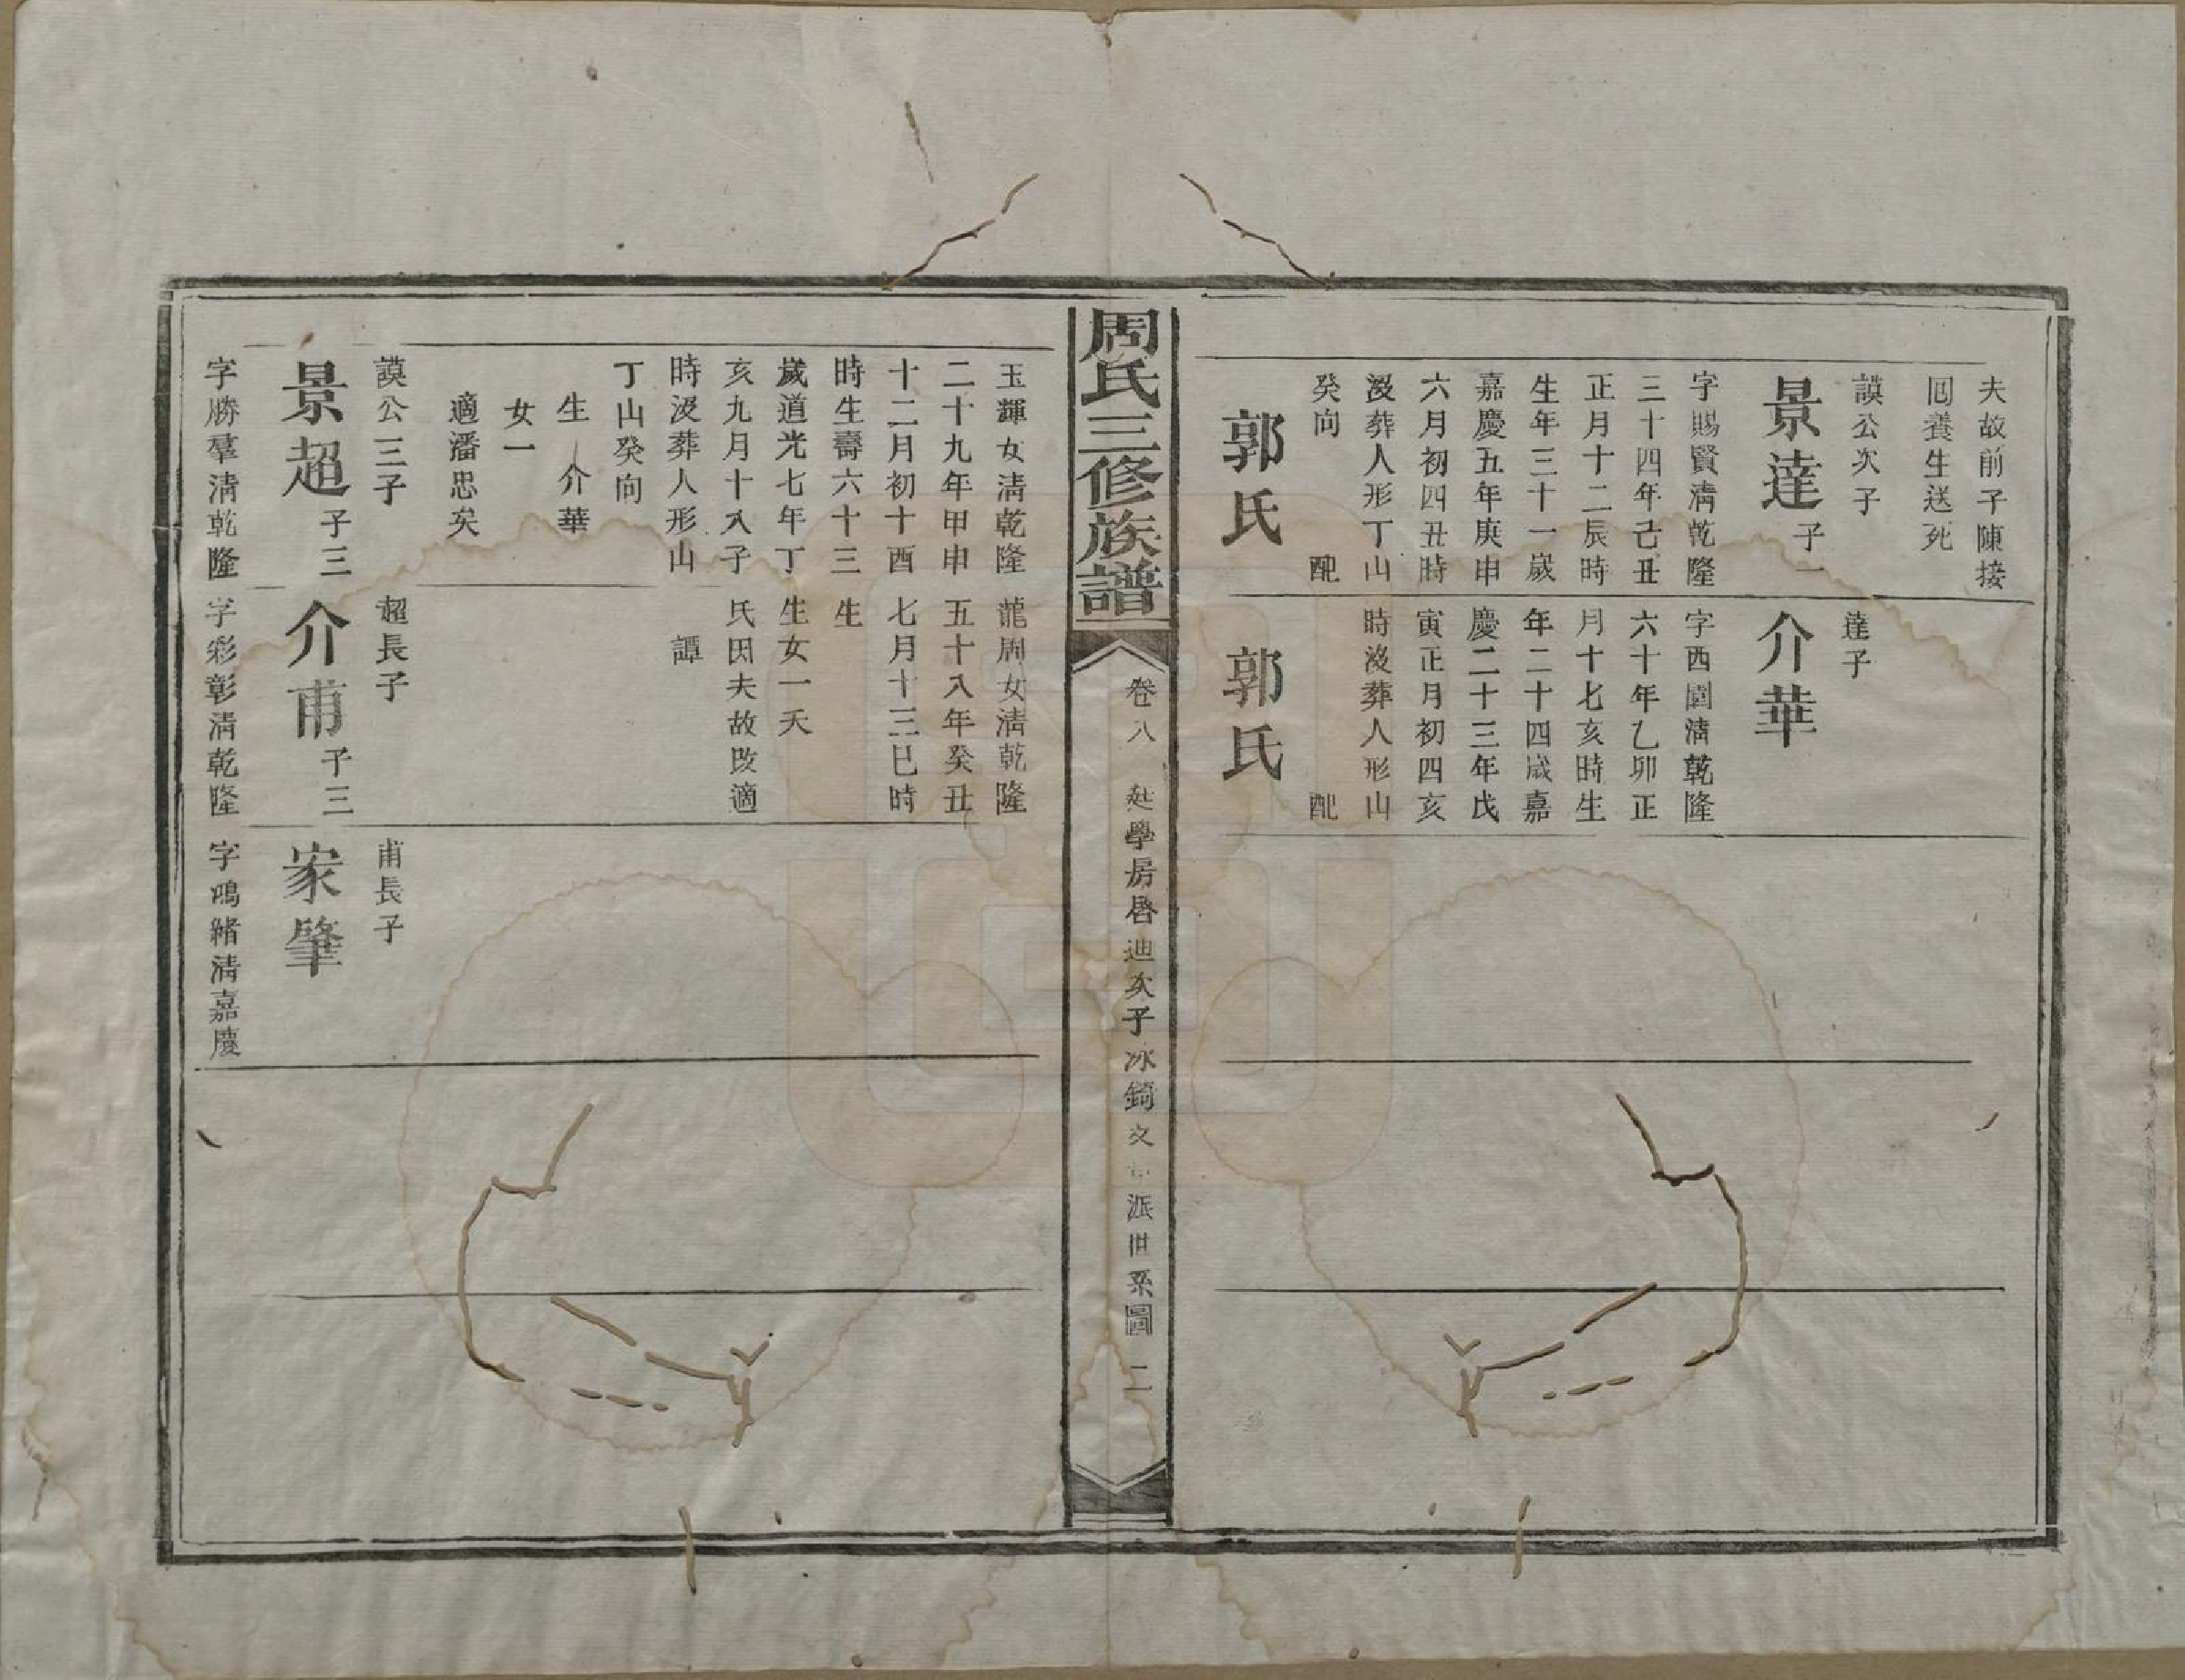 夫故前子陳接
囘養生送死
謨公次子
景達子一
字賜賢淸乾隆
三十四年己丑
正月十二辰時
生年三十一歲
嘉慶五年庚申
六月初四丑時
沒葬人形丁山
癸向 配
郭氏
達子
介華
字西園淸乾隆
六十年乙卯正
月十七亥時生
年二十四歲嘉
慶二十三年戊
寅正月初四亥
時沒葬人形山
配
郭氏
周氏三修族譜
卷八
廷學房啓迪次子冰錡文 派世系圖 二
玉輝女淸乾隆
二十九年甲申
十二月初十酉
時生壽六十三
歲道光七年丁
亥九月十八子
時沒葬人形山
丁山癸向
生 介華
女一
適潘思矣
謨公三子
景超子三
字勝羣淸乾隆
龍周女淸乾隆
五十八年癸丑
七月十三巳時
生
生女一夭
氏因夫故改適
譚
超長子
介甫子三
字彩彰淸乾隆
甫長子
家肇
字鴻緒淸嘉慶